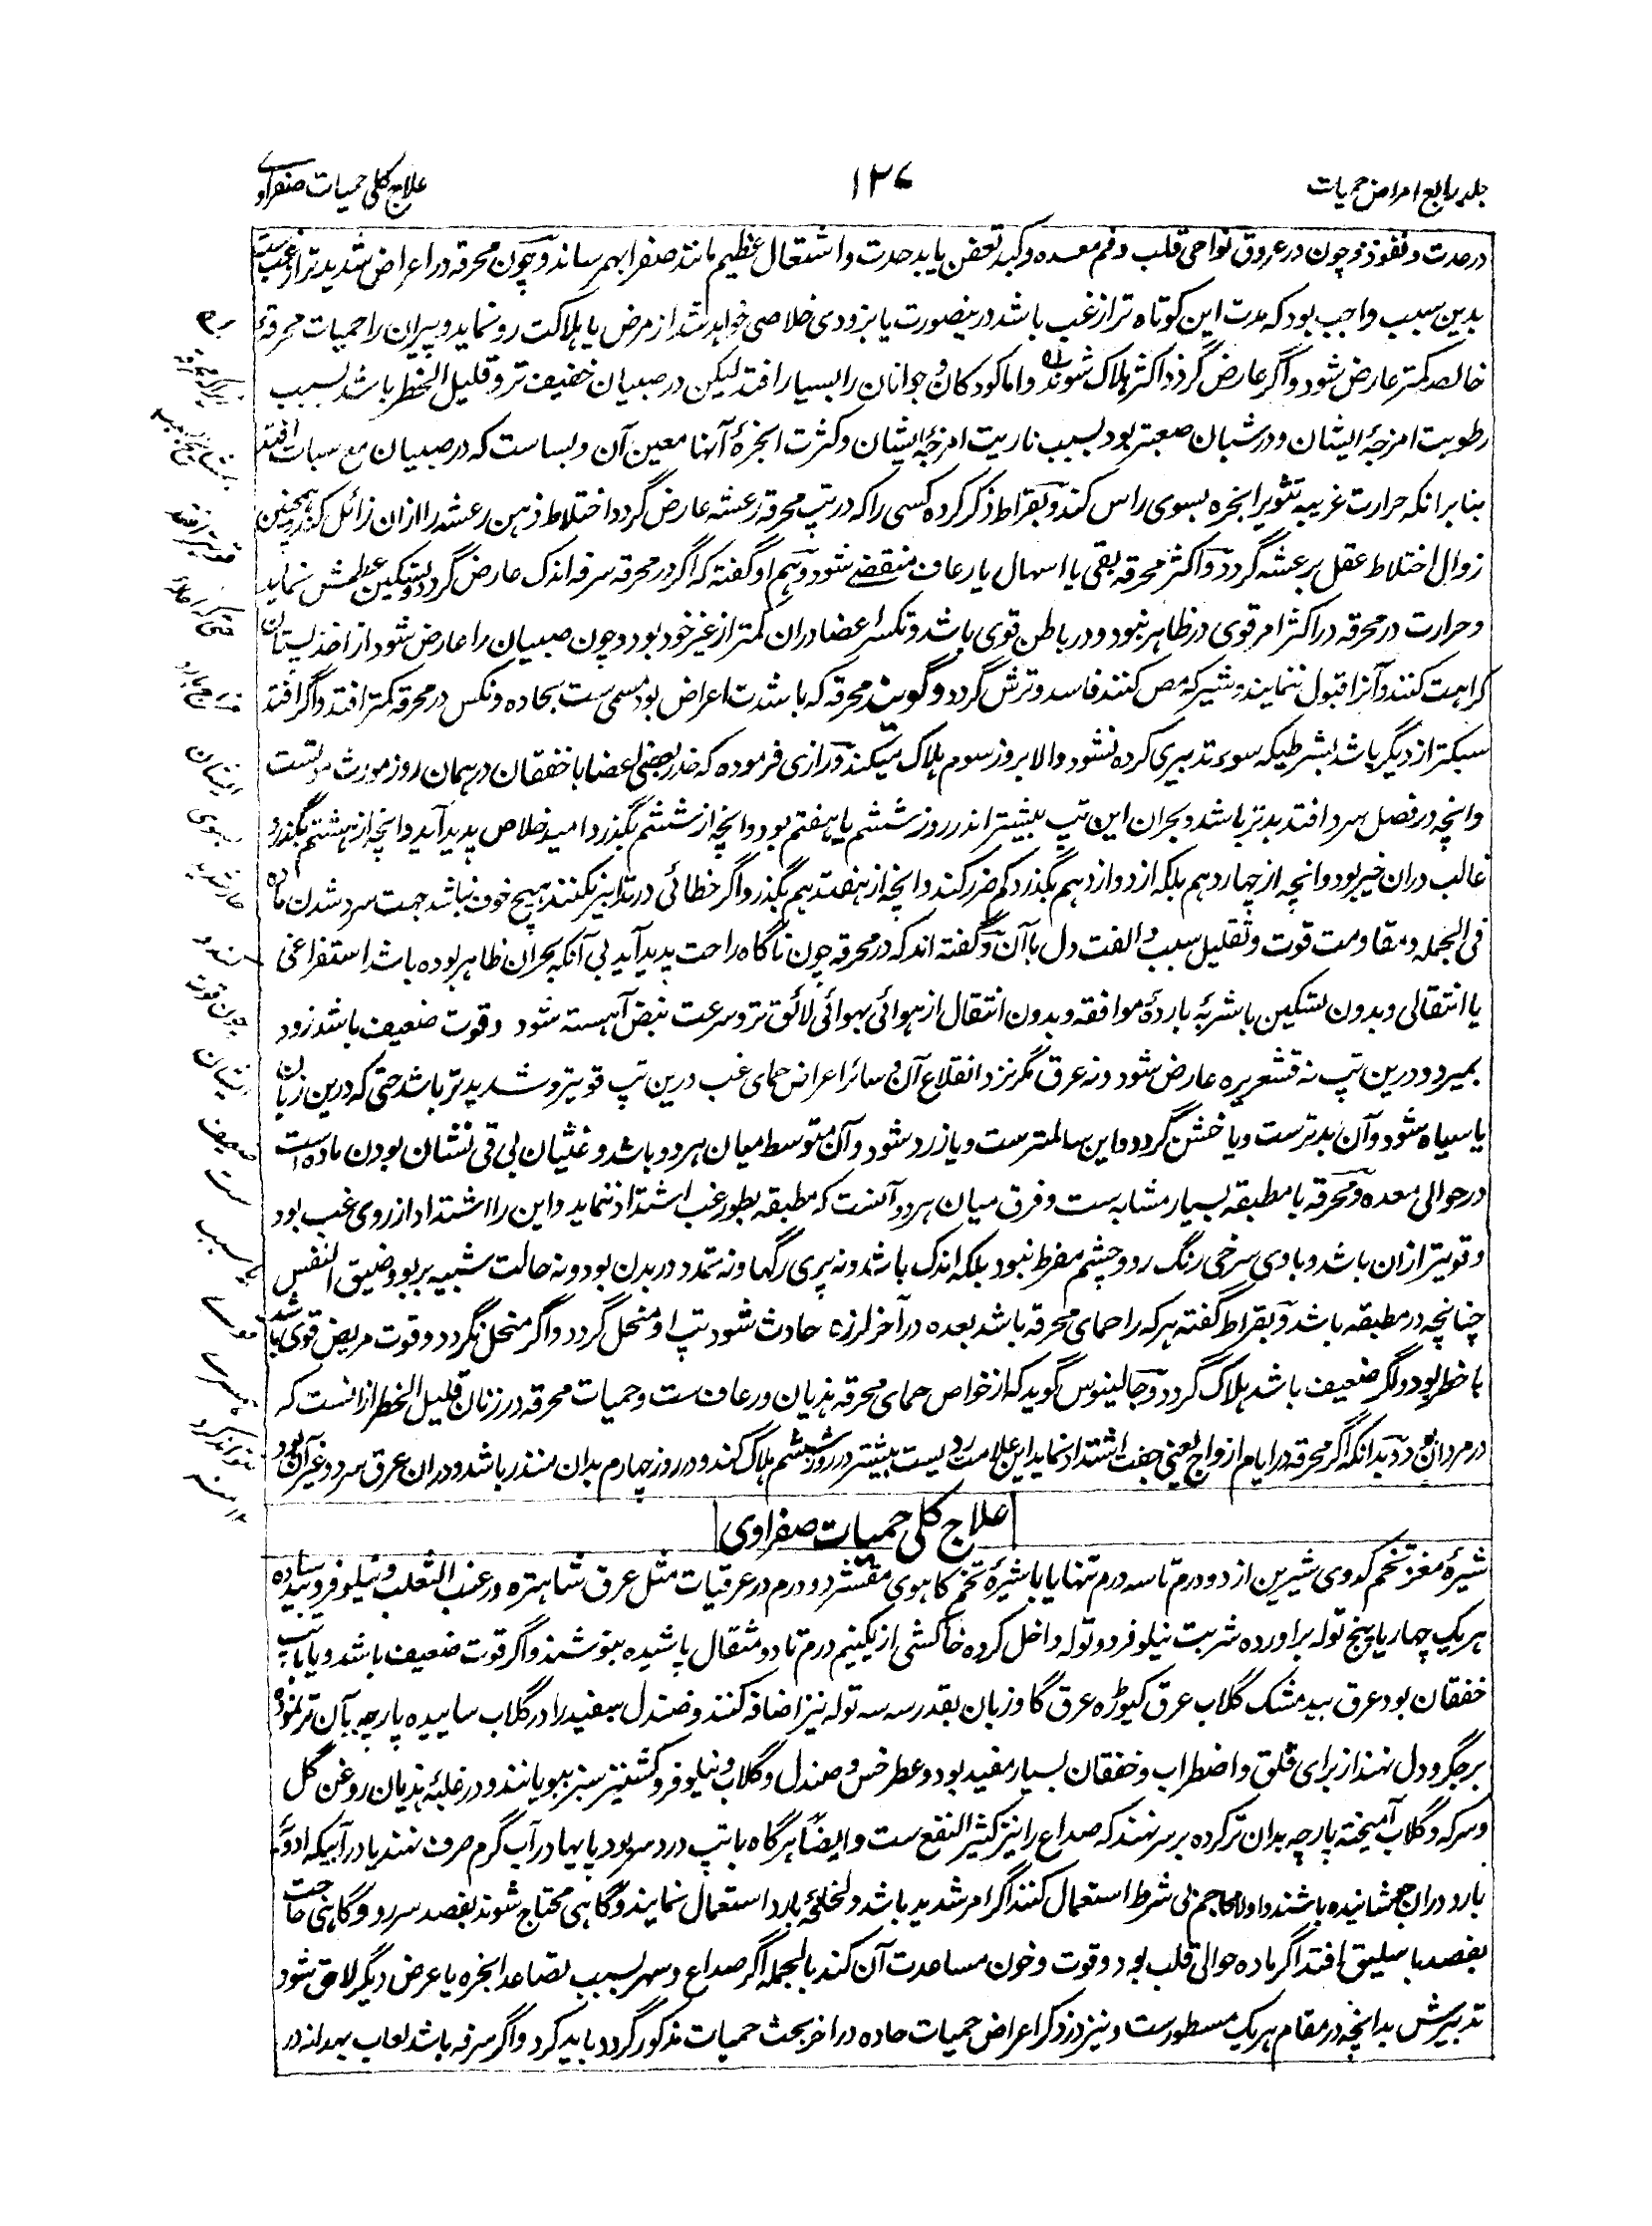 جلد رابع امراض حمیات
۱۳۷
علاج کلی حمیات صفراوی
در حدت و نفوذ و چون در عروق نواحی قلب و فم معده و کبد تعفن یابد حدت و اشتعال عظیم مانند صفرا بهم رساند و چون محرقه در اعراض شدیدتر از غب ست
بدین سبب واجب بود که مدت این کوتاه تر از غب باشد درینصورت یا بزودی خلاصی خواهد شد از مرض یا هلاکت رو نماید و پیران را حمیات محرقهٔ
خالصه کمتر عارض شود و اگر عارض گردد اکثر هلاک شوند و اما کودکان و جوانان را بسیار افتد لیکن در صبیان خفیف تر و قلیل الخطر باشد بسبب
رطوبت امزجهٔ ایشان و در شبان صعبتر بود بسبب ناریت امزجهٔ ایشان و کثرت ابخرهٔ آنها معین آن و بساست که در صبیان مع سبات افتد
بنابر آنکه حرارت غریبه تثویر ابخره بسوی راس کند و بقراط ذکر کرده کسی را که در تپ محرقه رعشه عارض گردد اختلاط ذهن رعشه را ازان زائل کند و همچنین
زوال اختلاط عقل برعشه گردد و اکثر محرقه بقی یا اسهال یا رعاف منقضی شود و هم او گفته که اگر در محرقه سرفه اندک عارض گردد تسکین عطش نماید
و حرارت در محرقه در اکثر امر قوی در ظاهر نبود و در باطن قوی باشد و تکسر اعضا دران کمتر از غیر خود بود و چون صبیان را عارض شود از اخذ پستان
کراهت کنند و آنرا قبول ننمایند و شیر که مص کنند فاسد و ترش گردد و گویند محرقه که باشدت اعراض بود مسمی ست بحاده و نکس در محرقه کمتر افتد و اگر افتد
سبکتر از دیگر باشد بشرطیکه سوء تدبیری کرده نشود والا بروز سوم هلاک میکند و رازی فرموده که خدر بعضی اعضا با خفقان در همان روز مورث موتست
و آنچه در فصل سرد افتد بدتر باشد و بحران این تپ بیشتر اندر روز ششم یا هفتم بود و آنچه از ششم بگذرد امید خلاص پدید آید و آنچه از هشتم بگذرد
غالب دران خیر بود و آنچه از چهاردهم بلکه از دوازدهم بگذرد کم ضرر کند و آنچه از هفدهم بگذرد اگر خطائی در تدابیر نکنند هیچ خوف نباشد جهت سرد شدن ماده
فی الجمله و مقاومت قوت و تقلیل سبب و الفت دل با آن و گفته اند که در محرقه چون ناگاه راحت پدید آید بی آنکه بحران ظاهر بوده باشد استفراغی
یا انتقالی و بدون تسکین باشربهٔ باردهٔ موافقه و بدون انتقال از هوائی بهوائی لائق تر و سرعت نبض آهسته شود و قوت ضعیف باشد زود
بمیرد و درین تپ نه قشعریره عارض شود و نه عرق مگر نزد انقلاع آن و سائر اعراض حمای غب درین تپ قویتر و شدیدتر باشد حتی که درین زبان
یا سیاه شود و آن بدترست و یا خشن گردد و این سالمترست و یا زرد شود و آن متوسط میان هر دو باشد و غثیان بی قی نشان بودن ماده است
در حوالی معده و محرقه با مطبقه بسیار مشابه ست و فرق میان هر دو آنست که مطبقه بطور غب اشتداد ننماید و این را اشتداد از روی غب بود
و قویتر ازان باشد و با وی سرخی رنگ رو و چشم مفرط نبود بلکه اندک باشد و نه پری رگها و نه تمدد در بدن بود و نه حالت شبیه بربو و ضیق النفس
چنانچه در مطبقه باشد و بقراط گفته هر که را حمای محرقه باشد بعده در آخر لرزه حادث شود تپ او منحل گردد و اگر منحل نگردد و قوت مریض قوی باشد
با خطر بود و اگر ضعیف باشد هلاک گردد و جالینوس گوید که از خواص حمای محرقه هذیان و رعاف ست و حمیات محرقه در زنان قلیل الخطر ازانست که
در مردان بود و بدانکه اگر محرقه در ایام ازواج یعنی جفت اشتداد نماید این علامت ردیست بیشتر در روز ششم هلاک کند و در روز چهارم بدان منذر باشد و دران عرق سرد و غیر آن بود
علاج کلی حمیات صفراوی
شیرهٔ مغز تخم کدوی شیرین از دو درم تا سه درم تنها یا با شیرهٔ تخم کاهوی مقشر دو درم در عرقیات مثل عرق شاهتره و عنب الثعلب و نیلوفر و بید ساده
هر یک چهار یا پنج توله برآورده شربت نیلوفر دو توله داخل کرده خاکشی از یکنیم درم تا دو مثقال پاشیده بنوشند و اگر قوت ضعیف باشد و یا با تپ
خفقان بود عرق بید مشک گلاب عرق کیوڑه عرق گاوزبان بقدر سه سه توله نیز اضافه کنند و صندل سفید را در گلاب ساییده پارچه بآن تر نموده
بر جگر و دل نهند از برای قلق و اضطراب و خفقان بسیار مفید بود و عطر خس و صندل و گلاب و نیلوفر و کشنیز سبز ببویانند و در غلبهٔ هذیان روغن گل
و سرکه و گلاب آمیخته پارچه بدان تر کرده بر سر نهند که صداع را نیز کثیر النفع ست و ایضاً هرگاه با تپ درد سر بود پایها در آب گرم صرف نهند یا در آبیکه ادویهٔ
بارد دران جوشانیده باشند و اولاً محاجم بی شرط استعمال کنند اگر امر شدید باشد و لخلخهٔ بارد استعمال نمایند و گاهی محتاج شوند بفصد سررو و گاهی حاجت
بفصد باسلیق افتد اگر ماده حوالی قلب بود و قوت و خون مساعدت آن کند بالجمله اگر صداع و سهر بسبب تصاعد ابخره یا عرض دیگر لاحق شود
تدبیرش بدانچه در مقام هر یک مسطورست و نیز در ذکر اعراض حمیات حاده در آخر بحث حمیات مذکور گردد باید کرد و اگر سرفه باشد لعاب بهدانه در
زیراکه محرقه
قویتر نفتد
حتی که حرارت
ایشان
بسوی
حار شدید
کنند و
چون قوت
ایشان
ضعیف
ست
بسبب
پیری
نتواند کرد
۱۲ منه